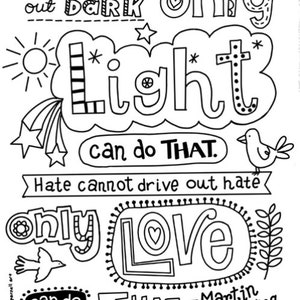 out DARK only
Light
can do THAT.
Hate cannot drive out hate
only LOVE
can do THAT
Martin